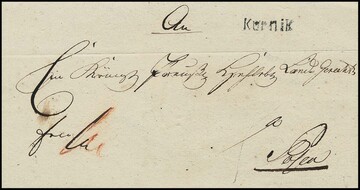 An
Kurnik
Ein Königl. Preußl. Hochlobl. Land Gericht
Posen